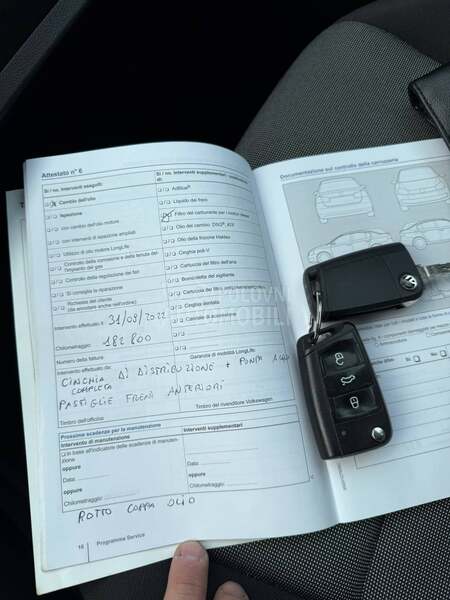 Attestato n° 6
Sì / no. Interventi eseguiti:
Sì / no. Interventi supplementari
di:
Cambio dell'olio
AdBlue®
Ispezione
Liquido dei freni
con interventi di ispezione ampliati
Filtro del carburante per i motori diesel
Olio del cambio DSG®, 4X4
Utilizzo di olio motore LongLife
Olio della frizione Haldex
Controllo della carrozzeria e della tenuta dell'impianto del gas
Cinghia poli-V
Controllo della regolazione dei fari
Cartuccia del filtro dell'aria
Si consiglia la riparazione
Bomboletta del sigillante
Richiesta del cliente
(da annotare anche nell'ordine)
Cinghia dentata
Intervento effettuato il: 31/08/2022
Chilometraggio: 182 800
Numero della fattura
Intervento effettuato da:
Garanzia di mobilità LongLife
CINGHIA DI DISTRIBUZIONE + POMPA
COMPLETA
PASTIGLIE FRENI ANTERIORI
Timbro dell'officina:
Timbro del rivenditore Volkswagen
Prossime scadenze per la manutenzione
Intervento di manutenzione
Interventi supplementari
In base all'indicatore delle scadenze di manutenzione
oppure
Data:
oppure
Chilometraggio:
Data:
oppure
Chilometraggio:
ROTTO COPPA OLIO
16 | Programma Service
Documentazione sul controllo della carrozzeria